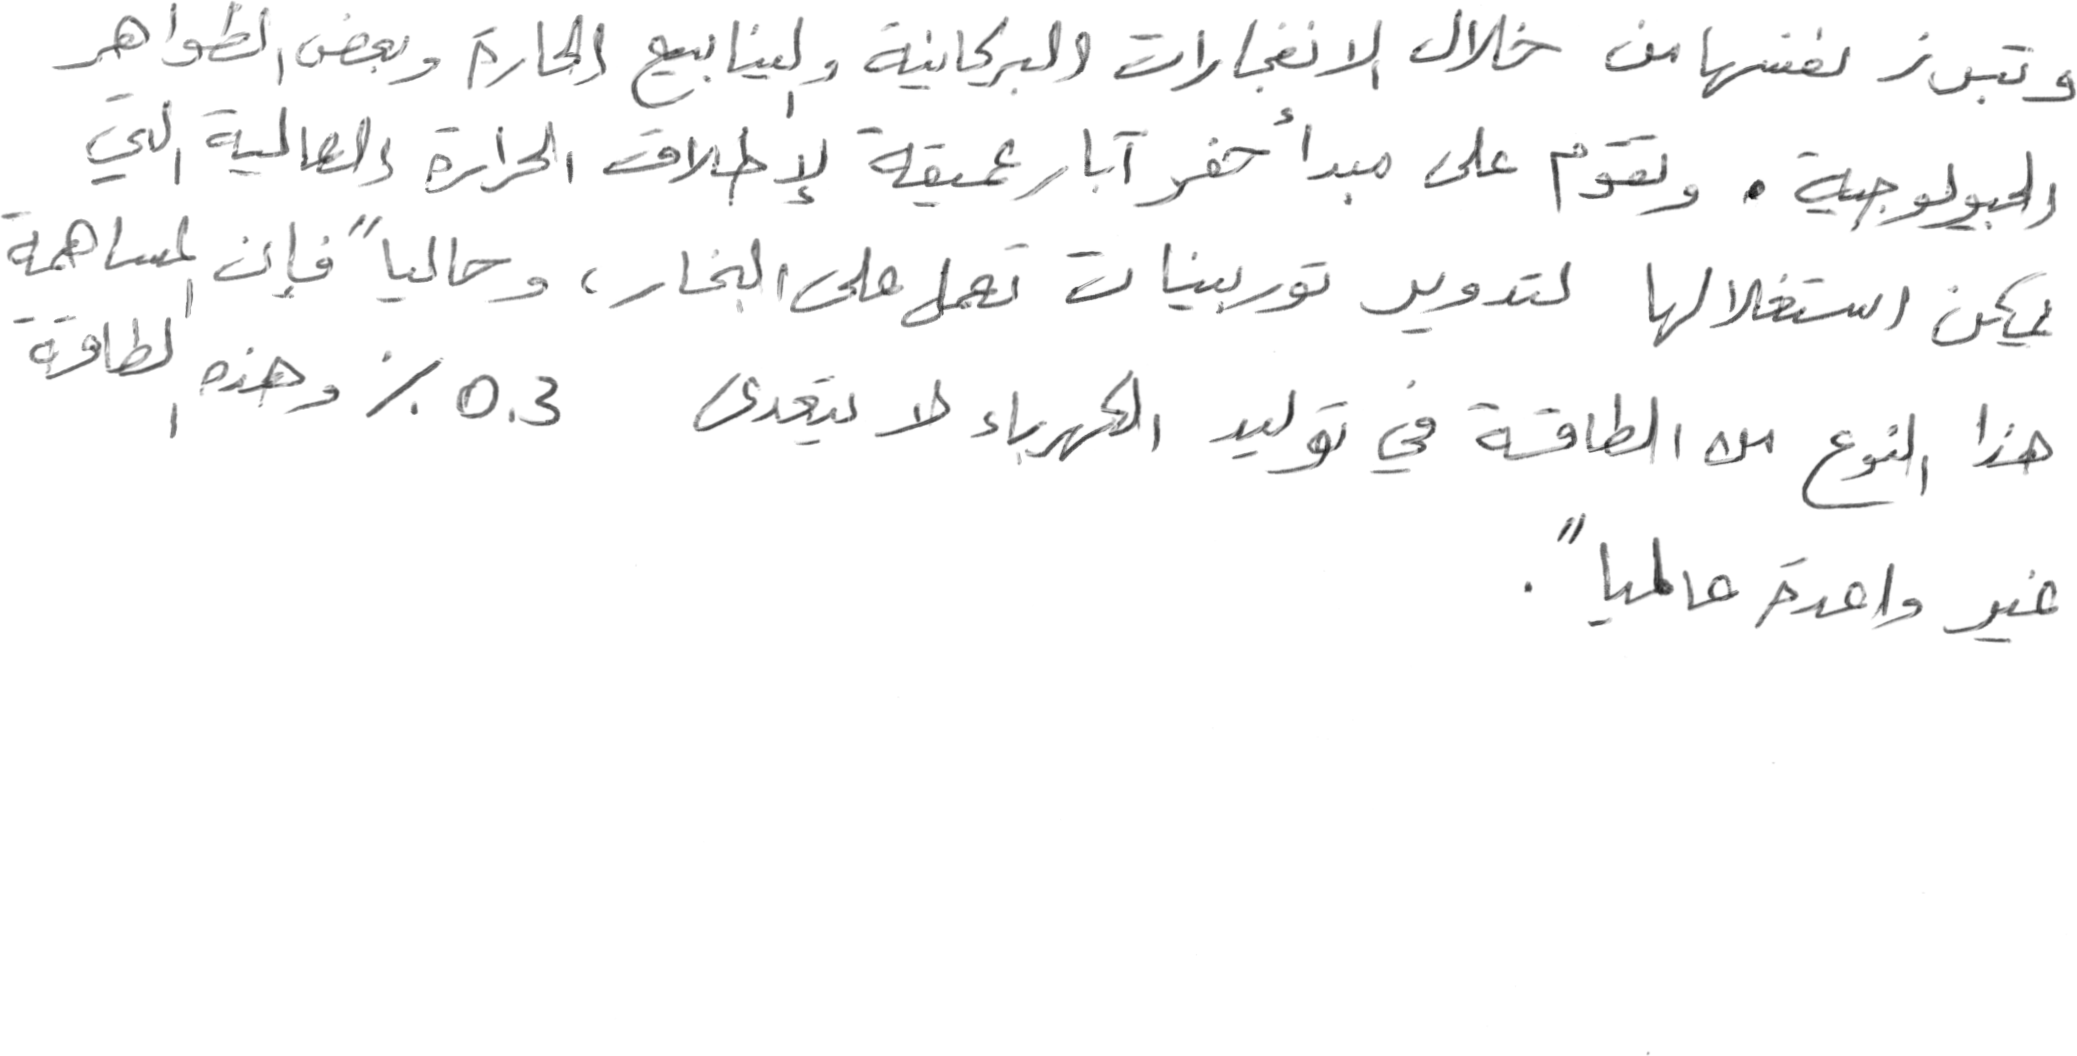 وتبرز نفسها من خلال الانفجارات البركانية والينابيع الحارة وبعض الظواهر
الجيولوجية . وتقوم على مبدأ حفر آبار عميقة لإطلاق الحرارة العالية التي
يمكن استغلالها لتدوير توربينات تعمل على البخار، وحالياً فإن المساهمة
هذا النوع من الطاقة في توليد الكهرباء لا يتعدى 0.3 ٪ وهذه الطاقة
غير واعدة عالمياً .